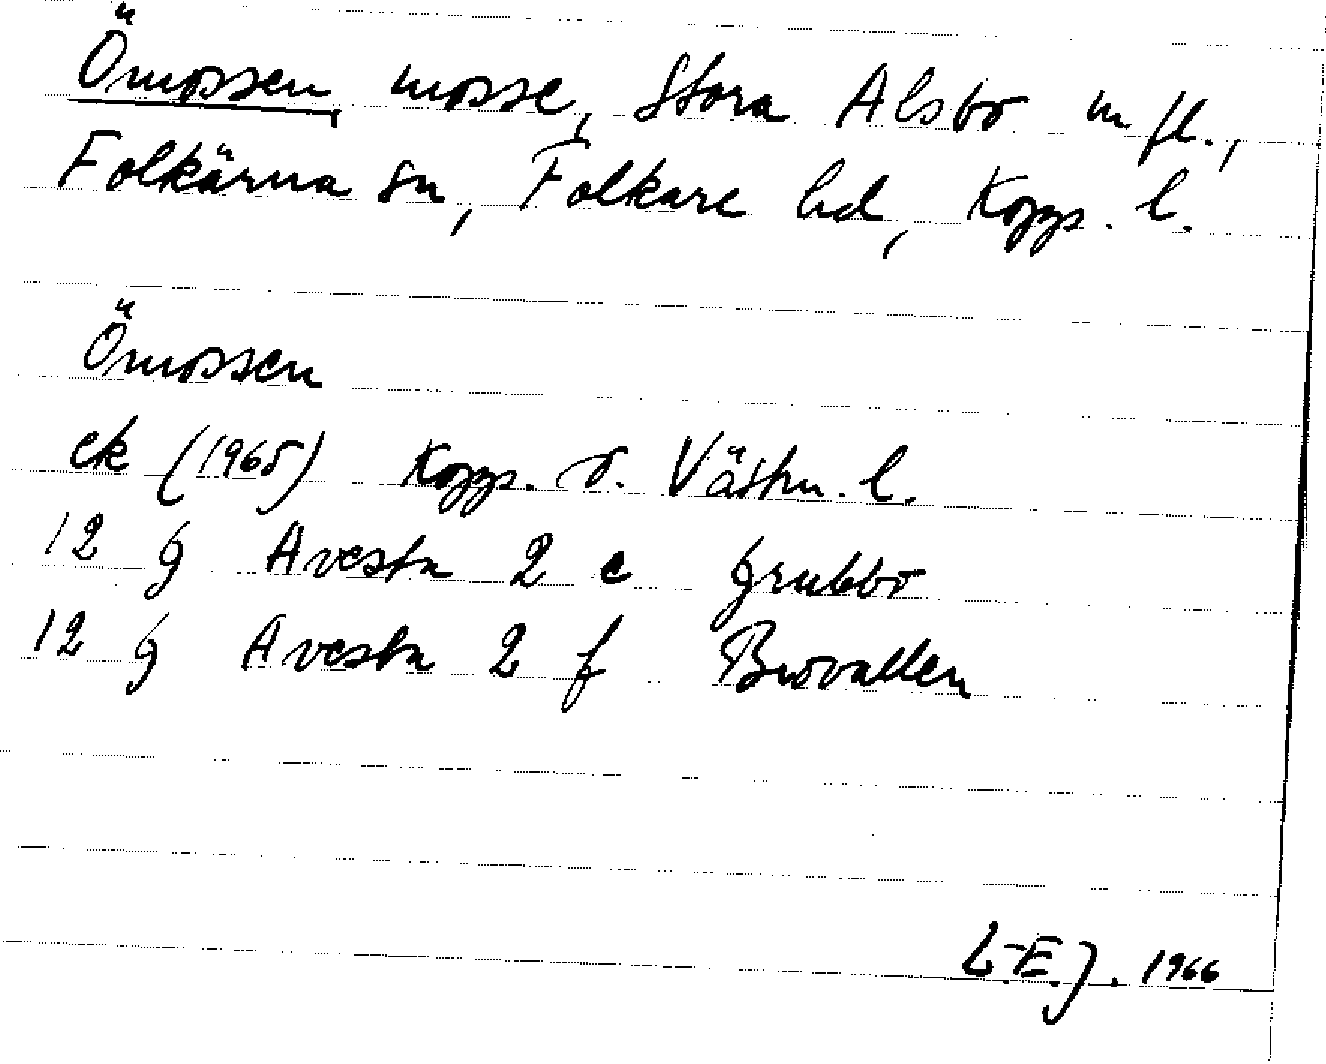 Ömossen, mosse, Stora Alsbo m fl.,
Folkärna sn, Folkare hd, Kopps. l.
Ömossen
ek (1965) Kopps. o. Västm. l.
12 G Avesta 2 e Grubbo
12 G Avesta 2 f Brovallen
L-E J. 1966